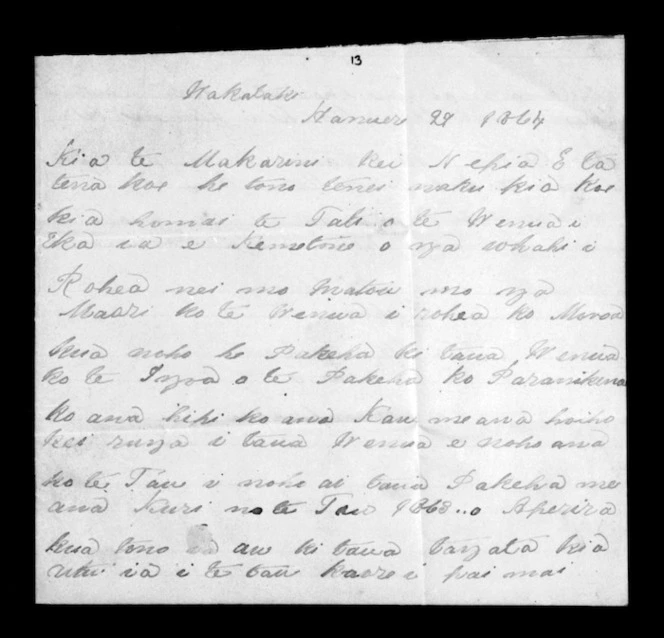 13
Wakataki
Hanueri 29 1864
Kia te Makarini kei Nepia E ta
tena koe he tono tenei naku kia koe
kia homai te Tali o te Wenua i
Eka ia e Kemetone o nga whahi i
Rohea nei mo matou mo nga
Maori ko te Wenua i rohea ko Moroa
kua noho he Pakeha ki taua Wenua
ko te Ingoa o te Pakeha ko Paranikena
ko ana hihi ko ana Kau me ana hoiho
kei runga i taua Wenua e noho ana
ko te Tau i noho ai taua Pakeha me
ana Kuri no te Tau 1863..o Aperira
kua tono au ki taua tangata kia
utu ia i te tau kaore i pai mai